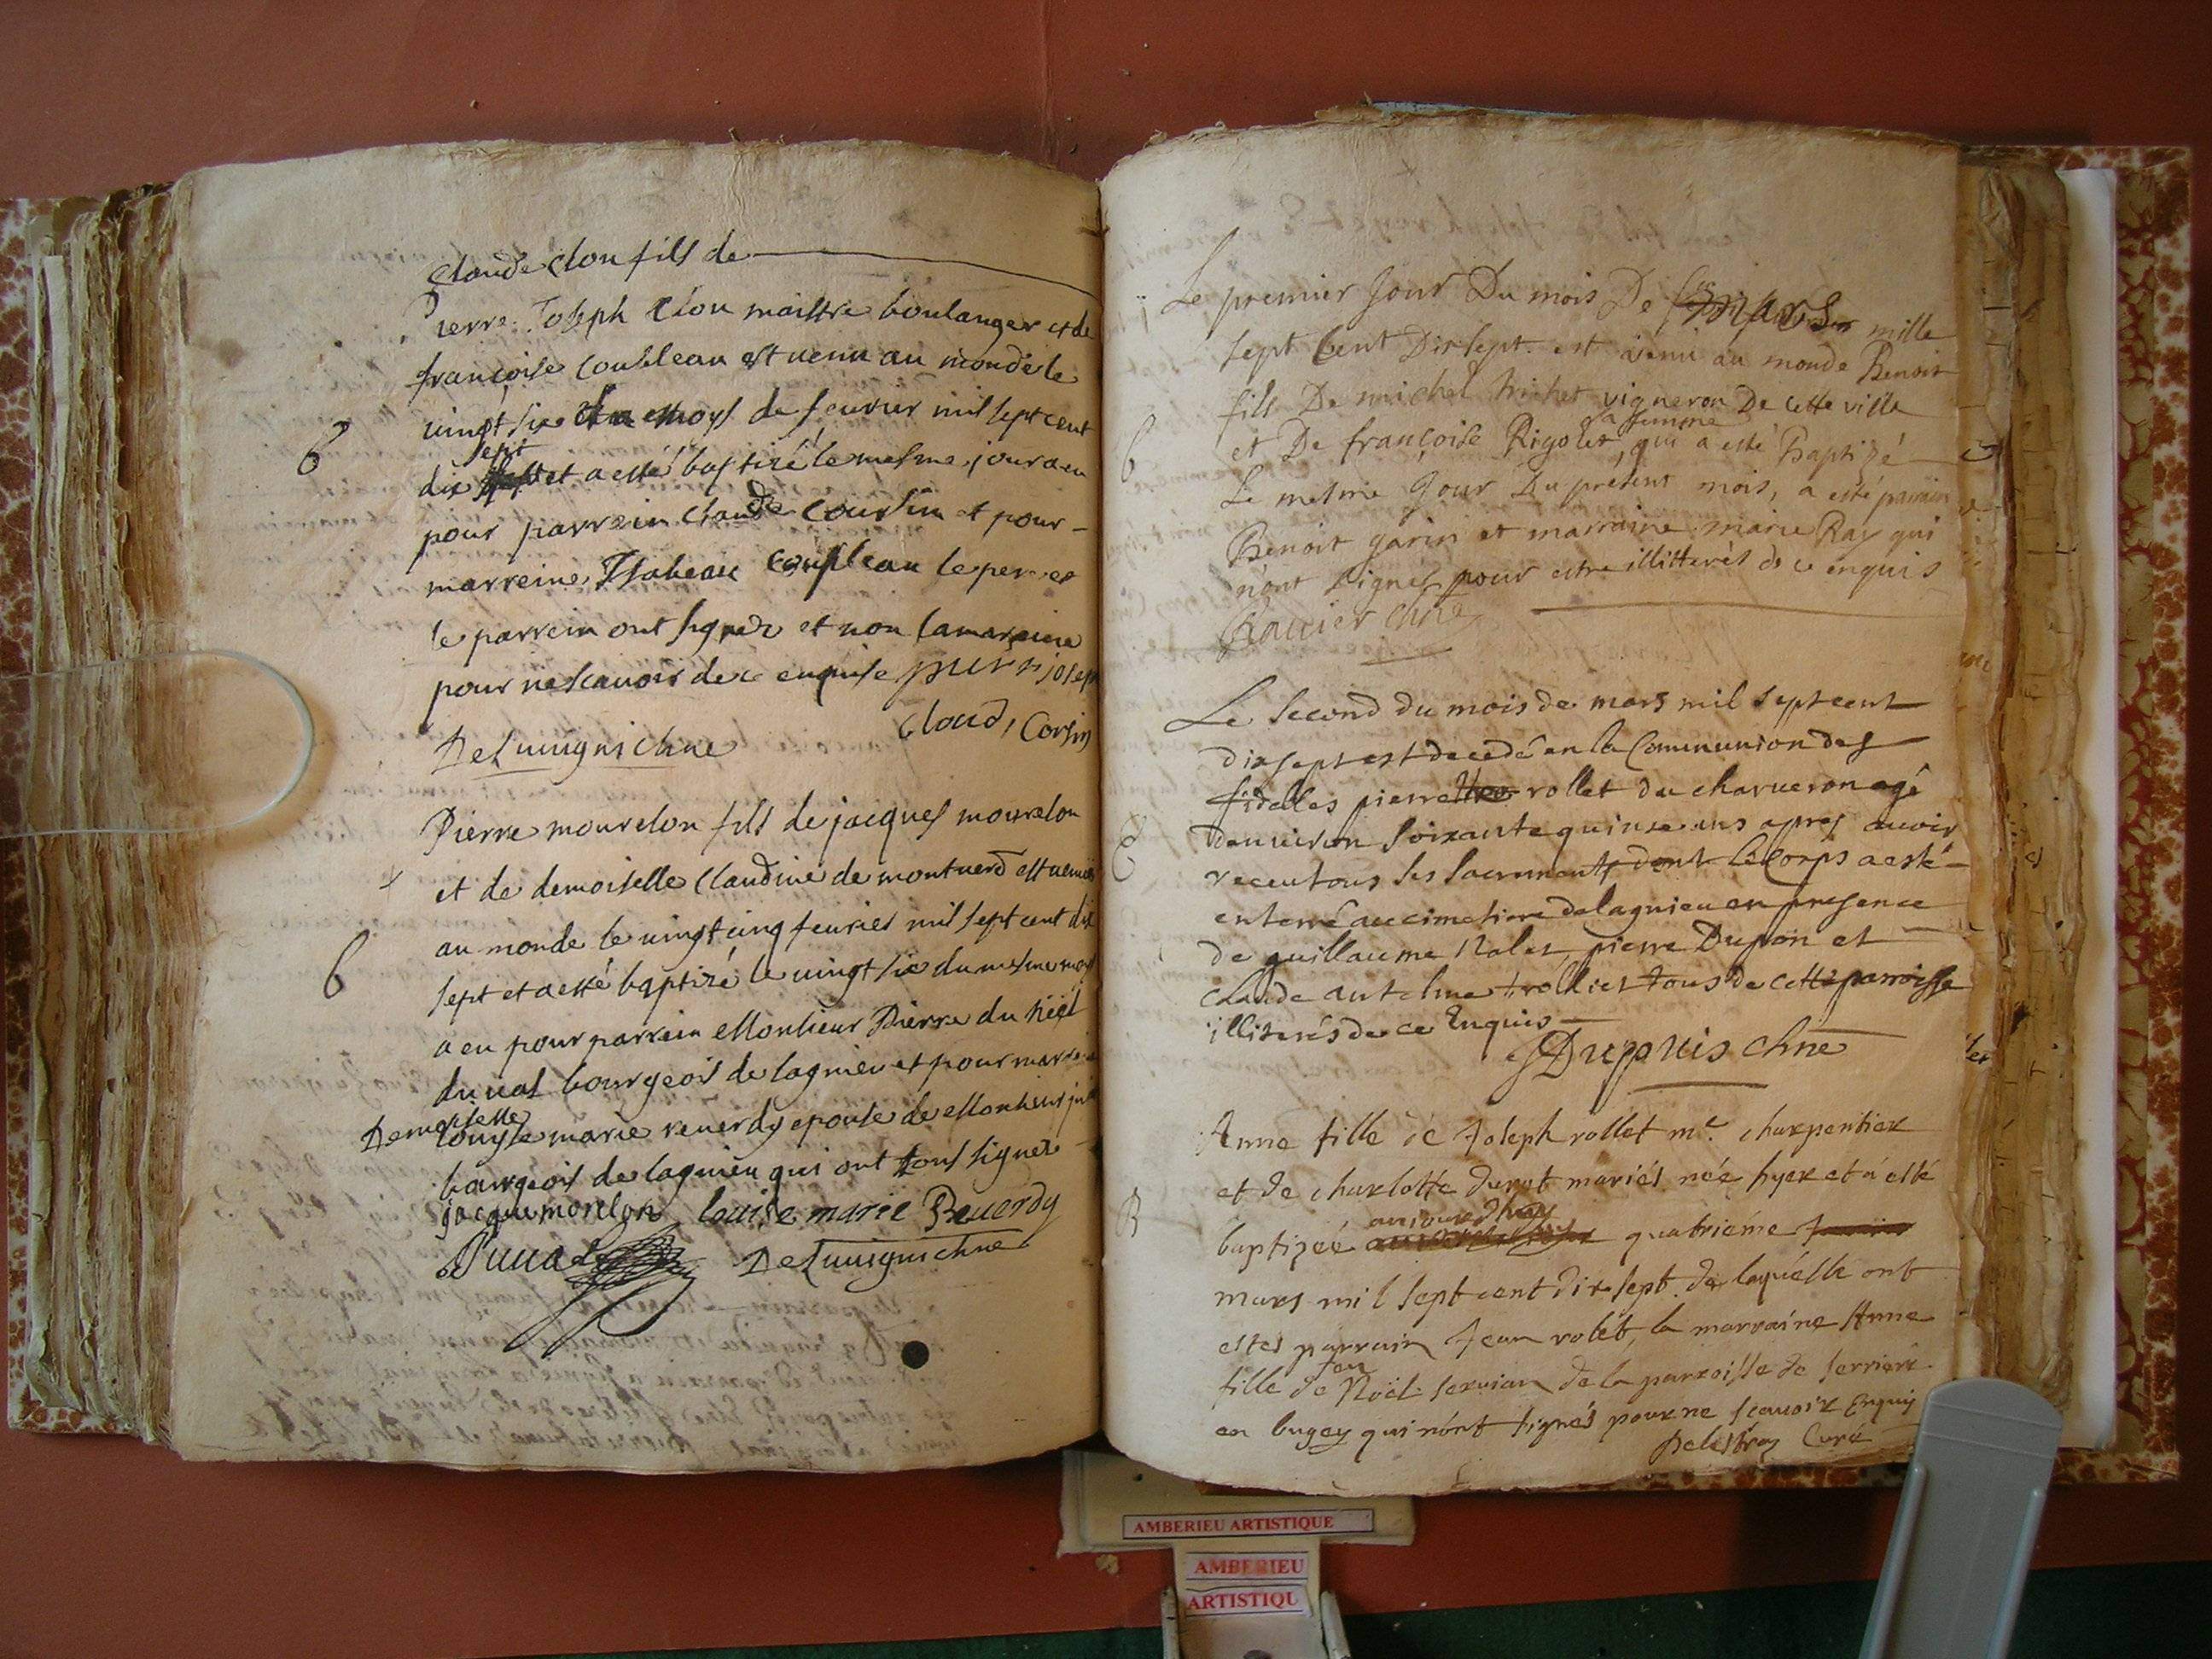 Claude Clou fils de
Pierre Joseph Clou maistre boulanger et de
françoise Coursleau est venu au monde le
vingt six du moys de feurier mil sept cent
6
sept
dix et a esté baptizé le mesme jour a eu
pour parrein Claude Coursin et pour
marreine Isabeau le pere et
le parrein ont signez et non la mareine
pour ne scauoir de ce enquise pierre joseph
Claude Corsin
Deluuigni chne
Pierre mourelon fils de jacques mourelon
et de demoiselle Claudine de montuerd est venu
au monde le vingt cinq feurier mil sept cent dix
6
sept et a esté baptizé le vingt six du mesme moys
a eu pour parrein Monsieur Pierre du
duual bourgeois de lagnieu et pour marreine
Demoiselle
Louyse marie reuerdy epouse de Monsieur
bourgeois de lagnieu qui ont tous signez
jacque morelon Louise marie Reuerdy
Duual Deluuigni chne
Le premier Jour Du mois De mars mille
sept Cent Dix sept est venu au monde Benoit
fils De michel michet vigneron De cette ville
sa femme
et De françoise Rigolet, qui a esté Baptizé
6
Le mesme Jour Du présent mois, a esté parrain
Benoit garin et marraine marie Ray qui
n'ont signes pour estre illitterés de ce enquis
Rauier chne
Le second du mois de mars mil sept cent
dix sept est decedé en la Communion des
fidelles pierre rollet du charueron agé
d'enuiron soixante quinse ans apres auoir
receu tous les sacrements dont le Corps a esté
enterré au cimetiere de lagnieu en presence
de guillaume Nalet, pierre Dupon et
Claude antelme trolliet tous de cette parroisse
illiterés de ce Enquis
Dupuis chne
Anne fille de Joseph rollet me. charpentier
et de charlotte durot mariés née hyer et a esté
B
aujourdhuy
baptizée quatriéme
mars mil sept cent dix sept. de laquelle ont
estes parrain Jean rolet, la marraine Anne
feu
fille de Noël seruian de la parroisse de serriere
en bugey qui n'ont signés pour ne scauoir Enquis
Delestraz Curé
AMBERIEU ARTISTIQUE
AMBERIEU
ARTISTIQU